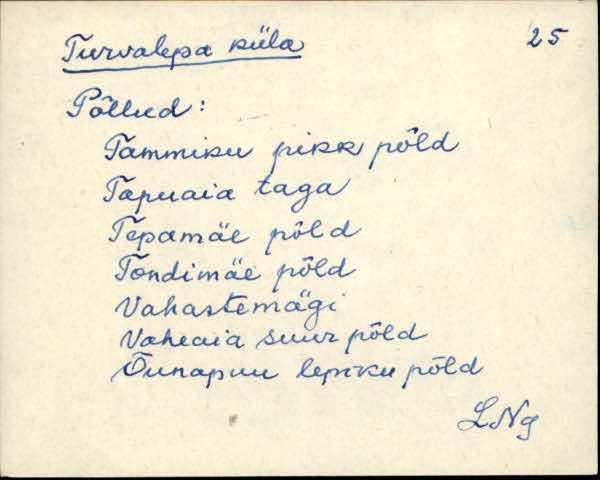 Turvalepa küla 25
Põllud:
Tammiku pikk põld
Tapuaia taga
Tepamäe põld
Tondimäe põld
Vahastemägi
Vaheaia suur põld
Õunapuu lepiku põld
LNg